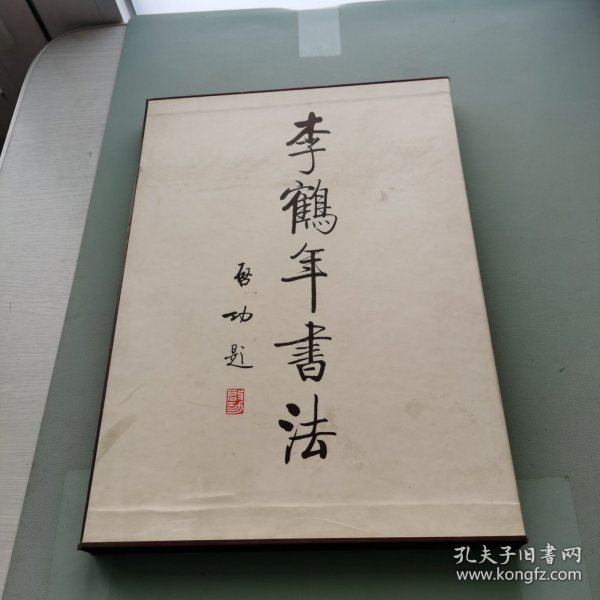 李鶴年書法
啓功題
啓功
孔夫子旧书网
www.kongfz.com